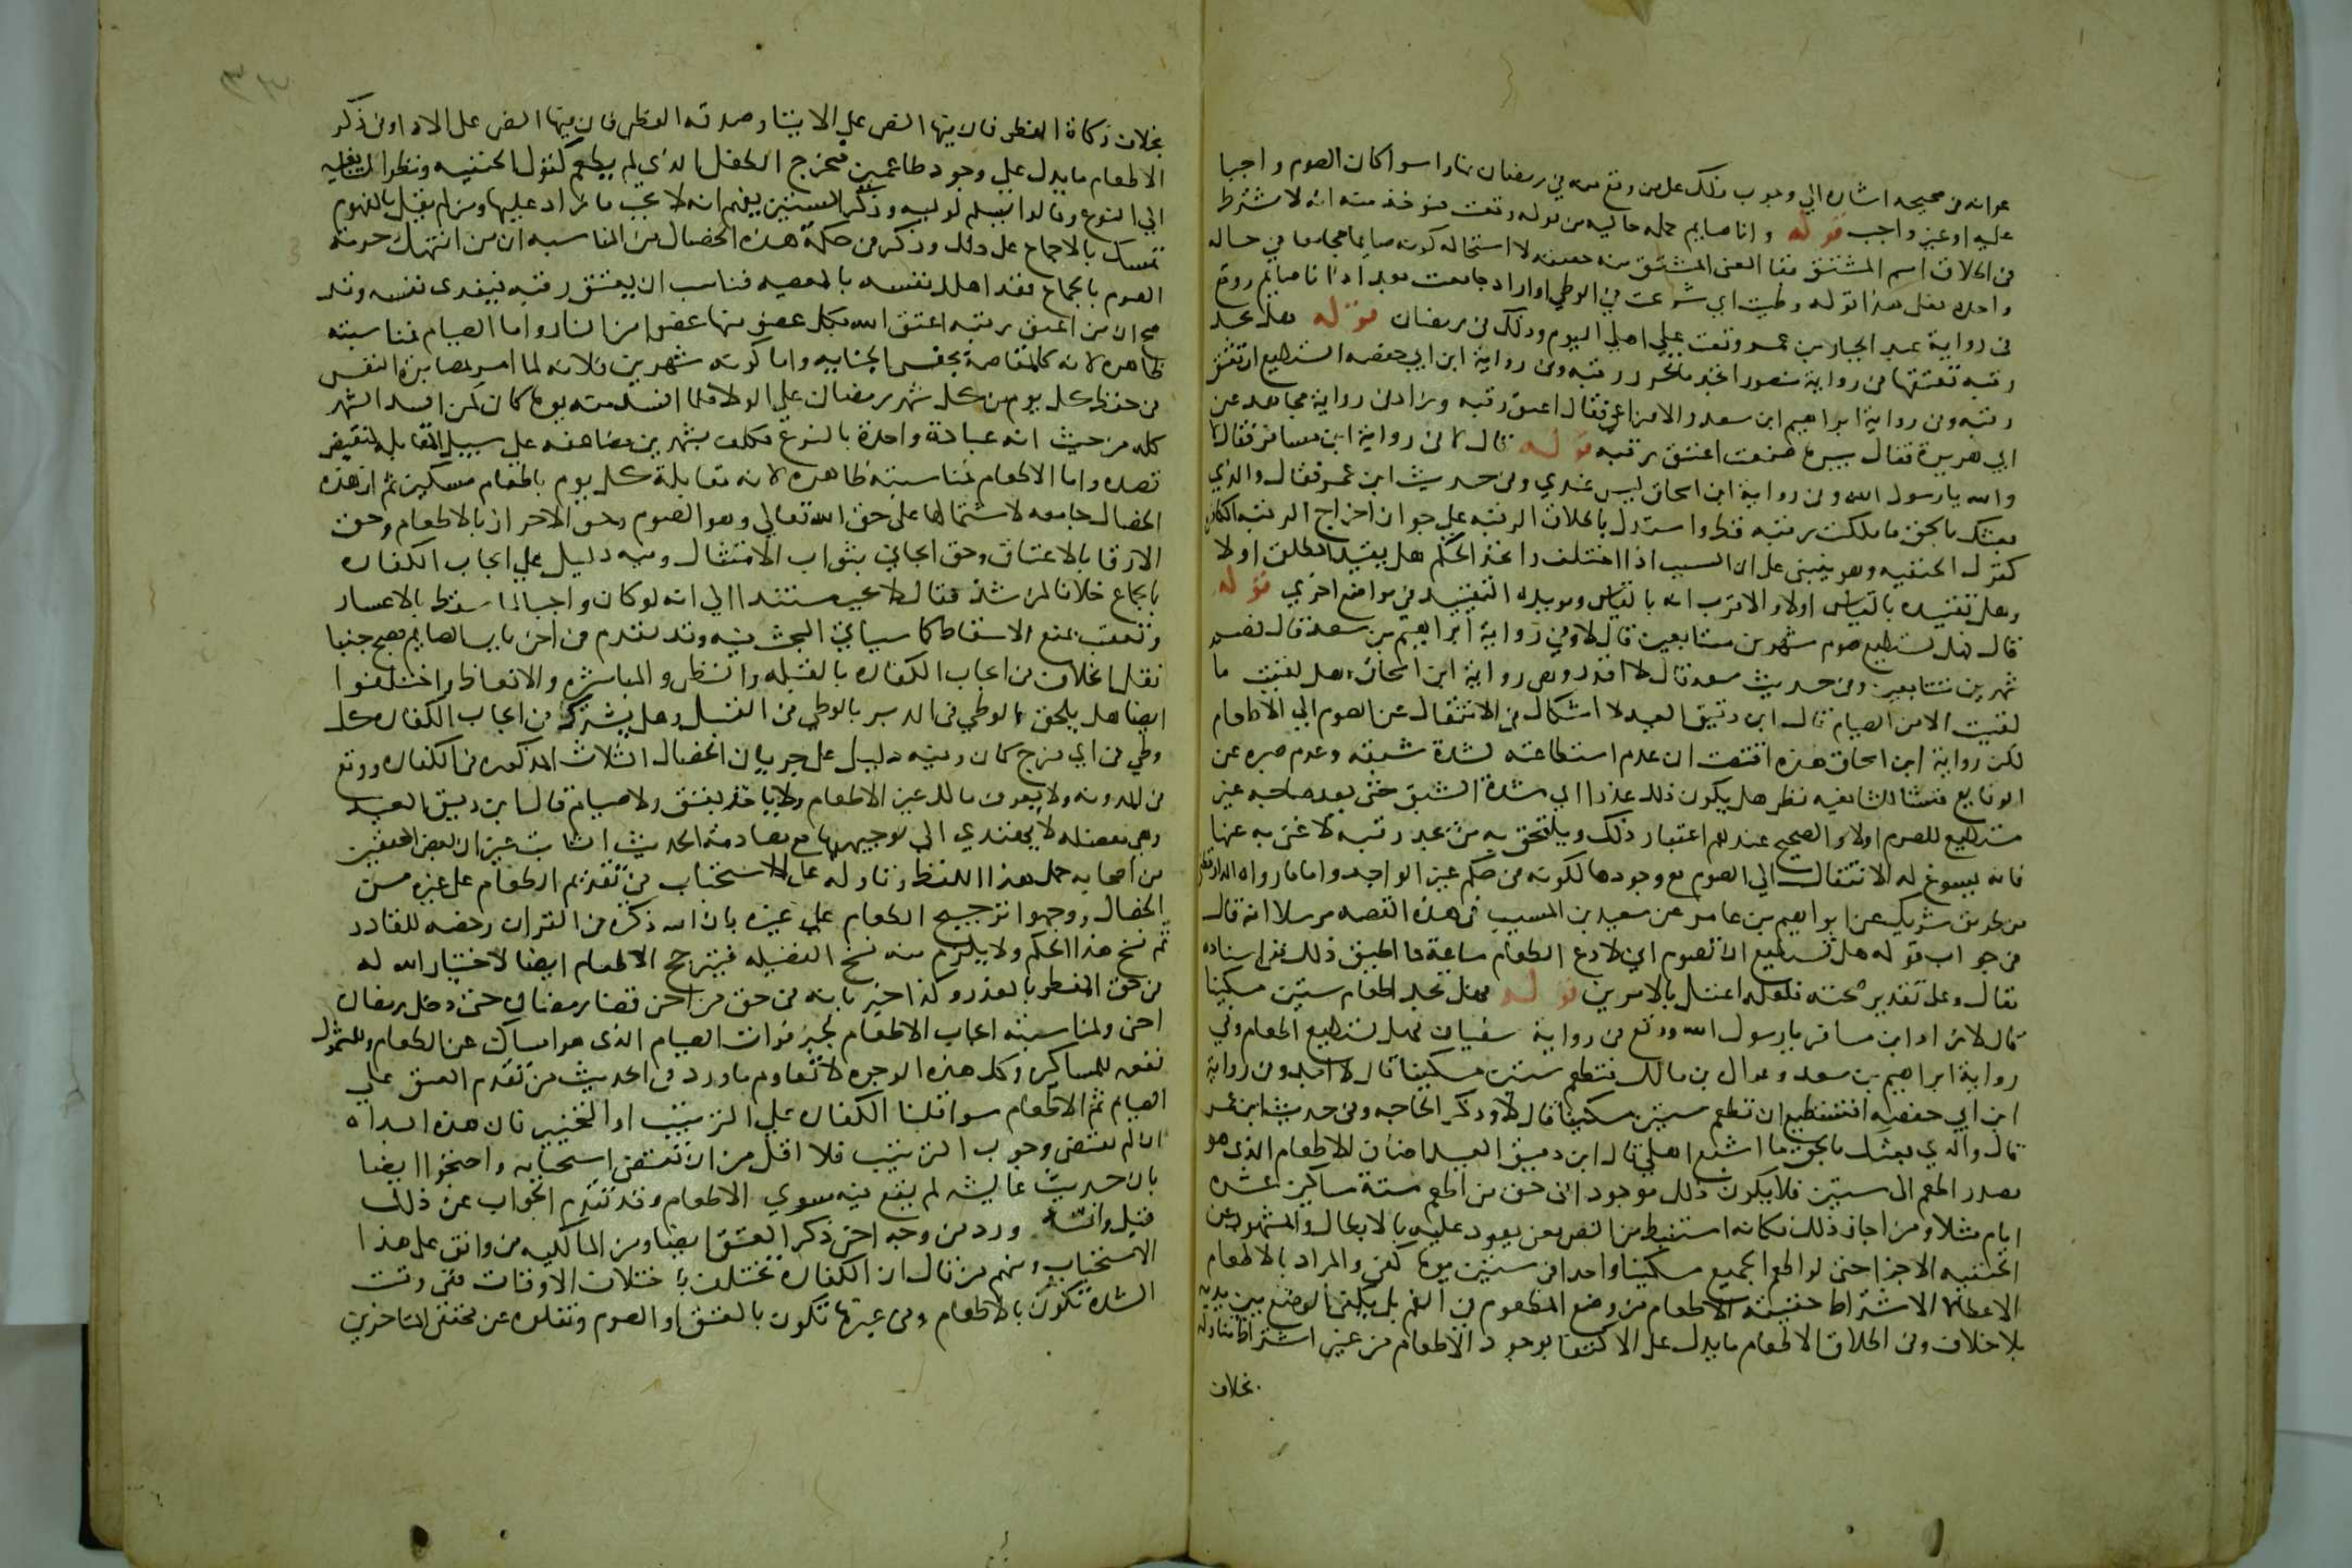 عوانه في صحيحه اشاره الي وجوب ذلك على من وقع منه في رمضان نهارا سوا كان الصوم واجبا
عليه او غير واجب قوله وانا صايم جمله حاليه من قوله وقعت فيوخذ منه انه لا يشترط
في اطلاق اسم المشتق بقا المعنى المشتق منه حقيقه لاستحاله كونه صايما مجامعا في حاله
واحده فعلى هذا قوله وطيت اي شرعت في الوطي او اراد جامعت بعد اذ انا صايم ووقع
في رواية عبد الجبار بن عمر وقعت علي اهلي اليوم وذلك في رمضان قوله هل تجد
رقبه تعتقها في رواية منصور اتجد ما تحرر رقبه وفي رواية ابن ابي حفصه اتستطيع ان تعتق
رقبه وفي رواية ابراهيم ابن سعد والاوزاعي فقال اعتق رقبه وزاد في رواية مجاهد عن
ابي هريرة فقال بيس ما صنعت اعتق رقبه قوله قال لا في رواية ابن مسافر فقال لا
والله يا رسول الله وفي رواية ابن اسحاق ليس عندي وفي حديث ابن عمر فقال والذي
بعثك بالحق ما ملكت رقبه قط واستدل باطلاق الرقبه علي جواز اخراج الرقبه الكافره
كقول الحنفيه وهو ينبني على ان السبب اذا اختلف واتحد الحكم هل يقيد المطلق او لا
وهل تقييده بالقياس اولا والاقرب انه بالقياس ويويده التقييد في مواضع اخري قوله
قال فهل تستطيع صوم شهرين متتابعين قال لا وفي رواية ابراهيم بن سعد قال فصم
شهرين متتابعين وفي حديث سعد قال لا اقدر وفي رواية ابن اسحاق وهل لقيت ما
لقيت الا من الصيام قال ابن دقيق العيد لا اشكال في الانتقال عن الصوم الي الاطعام
لكن رواية ابن اسحاق هذه اقتضت ان عدم استطاعته لشدة شبقه وعدم صبره عن
الوقاع فنشا للشافعيه نظر هل يكون ذلك عذرا اي شدة الشبق حتى يعد صاحبه غير
مستطيع للصوم اولا والصحيح عندهم اعتبار ذلك ويلتحق به من يجد رقبه لا غنى به عنها
فانه يسوغ له الانتقال الي الصوم مع وجودها لكونه في حكم غير الواجد واما ما رواه الدارقطني
من طريق شريك عن ابراهيم بن عامر عن سعيد بن المسيب في هذه القصه مرسلا انه قال
في جواب قوله هل تستطيع ان تصوم اني لا ادع الطعام ساعة فما اطيق ذلك ففي اسناده
مقال وعلى تقدير صحته فلعله اعتل بالامرين قوله فهل تجد اطعام ستين مسكينا
قال لا زاد ابن مسافر يا رسول الله ووقع في رواية سفيان فهل تستطيع اطعام وفي
رواية ابراهيم بن سعد وعراك بن مالك فتطعم ستين مسكينا قال لا اجد وفي رواية
ابن ابي حفصه افتستطيع ان تطعم ستين مسكينا قال لا وذكر الحاجه وفي حديث ابن عمر
قال والذي بعثك بالحق ما اشبع اهلي قال ابن دقيق العيد اضاف الاطعام الذي هو
مصدر اطعم الى ستين فلا يكون ذلك موجودا في حق من اطعم ستة مساكين عشره
ايام مثلا ومن اجاز ذلك فكانه استنبط من النص معنى يعود عليه بالابطال والمشهور عن
الحنفيه الاجزا حتى لو اطعم الجميع مسكينا واحدا في ستين يوما كفى والمراد بالاطعام
الاعطا لا اشتراط حقيقة الاطعام من وضع المطعوم في الفم بل يكفي الوضع بين يديه
بلا خلاف وفي اطلاق الاطعام ما يدل على الاكتفا بوجود الاطعام من غير اشتراط مناوله
بخلاف
بخلاف زكاة الفطر فان فيها النص علي الايتا وصدقه الفطر فان فيها النص على الادا وفي ذكر
الاطعام ما يدل علي وجود طاعمين فيخرج الطفل الذي لم يطعم كقول الحنفيه ونظر الشافعيه
الي النوع وقالوا يسلم لوليه وذكر الستين يفهم انه لا يجب ما زاد عليها ومن لم يقل بالمفهوم
تمسك بالاجماع على ذلك وذكر في حكمة هذه الخصال من المناسبه ان من انتهك حرمة
الصوم بالجماع فقد اهلك نفسه بالمعصيه فناسب ان يعتق رقبه فيفدى نفسه وقد
صح ان من اعتق رقبه اعتق الله بكل عضو منها عضوا من النار واما الصيام فمناسبته
ظاهره لانه كالمقاصة بجنس الجنايه واما كونه شهرين فلانه لما امر بمصابرة النفس
في حفظ كل يوم من شهر رمضان علي الولا فلما افسد منه يوما كان كمن افسد الشهر
كله من حيث انه عبادة واحدة بالنوع فكلف بشهرين مضاعفه علي سبيل المقابله لنقيض
قصده واما الاطعام فمناسبته ظاهره لانه مقابلة كل يوم باطعام مسكين ثم ان هذه
الخصال جامعه لاشتمالها على حق الله تعالي وهو الصوم وحق الاحرار بالاطعام وحق
الارقا بالاعتاق وحق الجاني بثواب الامتثال وفيه دليل علي ايجاب الكفاره
بالجماع خلافا لمن شذ فقال لا تجب مستندا الي انه لو كان واجبا لما سقط بالاعسار
وتعقب بمنع الاسقاط كما سياتي البحث فيه وقد تقدم في اخر باب الصايم يصبح جنبا
نقل الخلاف في ايجاب الكفاره بالقبله والنظر والمباشره والانعاظ واختلفوا
ايضا هل يلحق الوطي في الدبر بالوطي في القبل وهل يشترط في ايجاب الكفاره كل
وطي في اي فرج كان وفيه دليل على جريان الخصال الثلاث المذكوره في الكفاره ووقع
في المدونه ولا يعرف مالك غير الاطعام ولا ياخذ بعتق ولا صيام قال ابن دقيق العيد
وهي معضله لا يهتدي الي توجيهها مع مصادمة الحديث الثابت غير ان بعض المحققين
من اصحابه حمل هذا اللفظ وتاوله على الاستحباب في تقديم الطعام على غيره من
الخصال ووجهوا ترجيح الطعام علي غيره بان الله ذكره في القران رخصه للقادر
ثم نسخ هذا الحكم ولا يلزم منه نسخ الفضيله فيترجح الاطعام ايضا لاختيار الله له
في حق المفطر بالعذر وكذا اخبر بانه في حق من اخر قضا رمضان حتى دخل رمضان
اخر ولمناسبة ايجاب الاطعام لجبر فوات الصيام الذي هو امساك عن الطعام ولشمول
نفعه للمساكين وكل هذه الوجوه لا تقاوم ما ورد في الحديث من تقديم العتق علي
الصيام ثم الاطعام سوا قلنا الكفاره علي الترتيب او التخيير فان هذه البداه
ان لم تقتض وجوب الترتيب فلا اقل من ان تقتضي استحبابه واحتجوا ايضا
بان حديث عايشه لم يقع فيه سوي الاطعام وقد تقدم الجواب عن ذلك
قبل وانه ورد من وجه اخر ذكر العتق ايضا ومن المالكيه من وافق على هذا
الاستحباب ومنهم من قال ان الكفاره تختلف باختلاف الاوقات ففي وقت
الشده تكون بالاطعام وفي غيرها تكون بالعتق او الصوم ونقلوه عن محققي المتاخرين